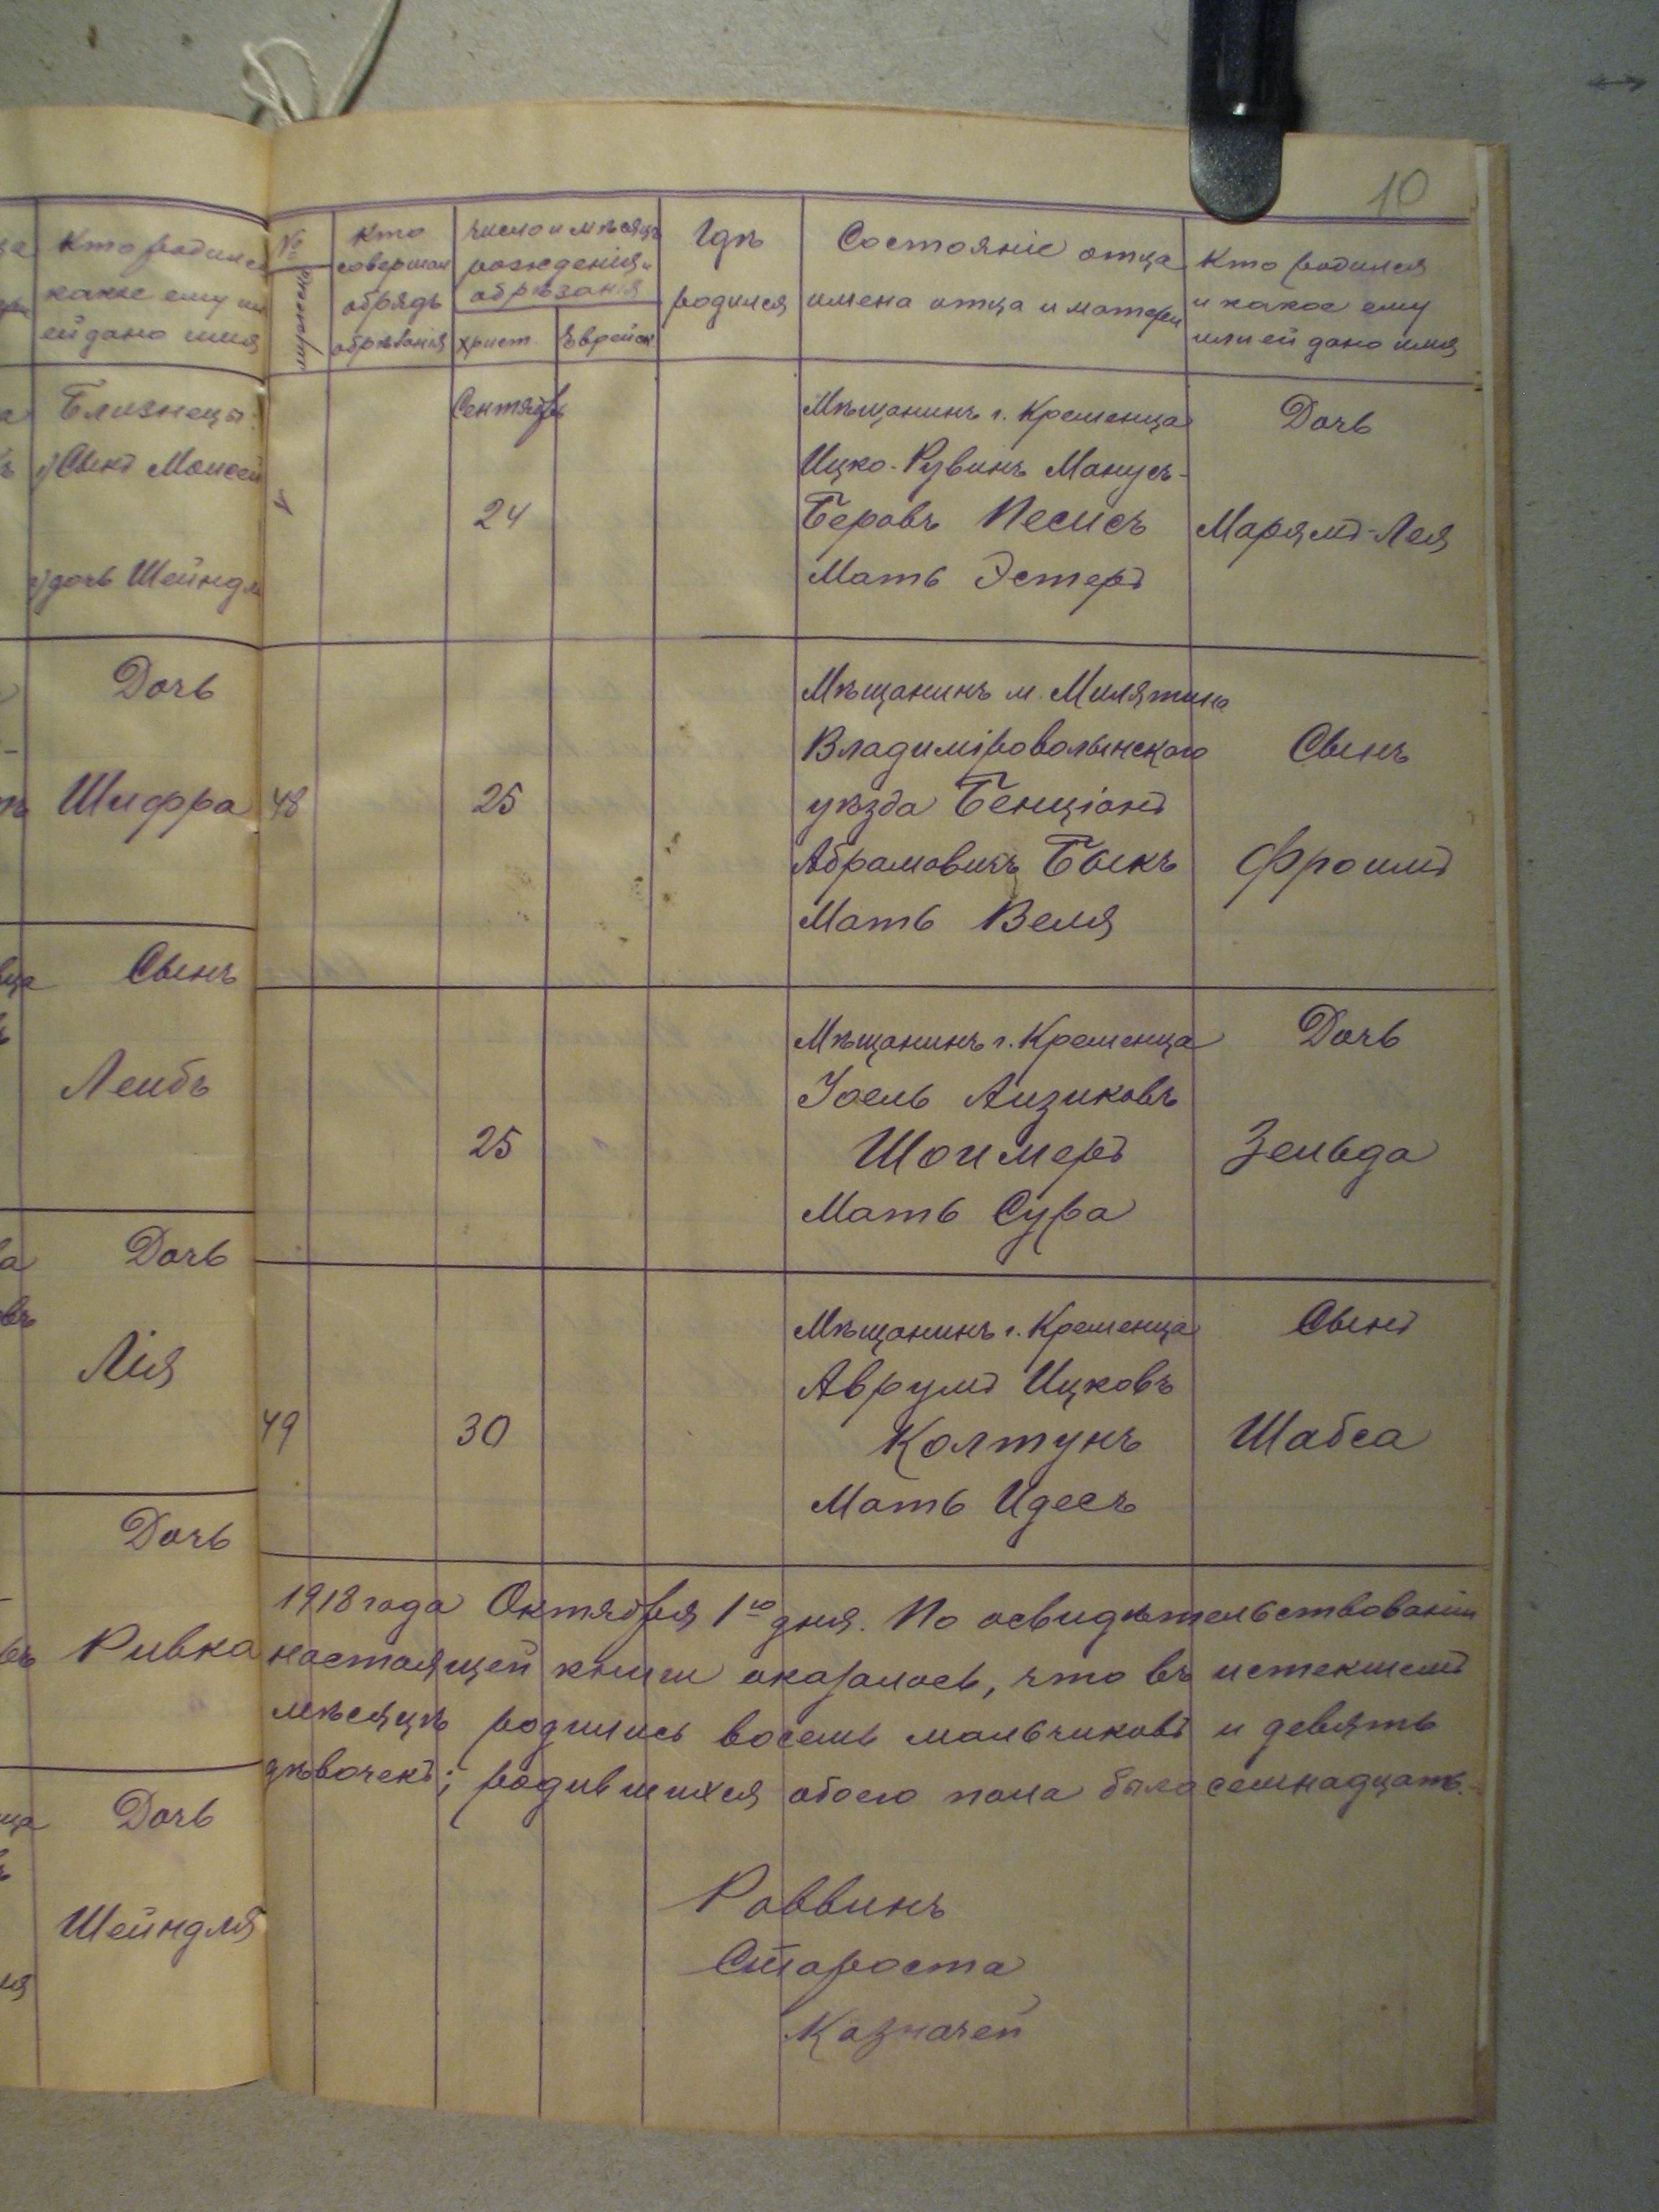 10
Кто родился
какое ему или
ей дано имя
Близнецы:
1) Сынъ Моисей
2) дочь Шейндля
Дочь
Шифра
Сынъ
Лейбъ
Дочь
Лія
Дочь
Ривка
Дочь
Шейндля
№
мужеска
Кто
совершал
обрядъ
обрѣзанія
Число и мѣсяцъ
рожденія и
обрѣзанія
христ.
Еврейск
Гдѣ
родился
Состояніе отца
имена отца и матери
Кто родился
и какое ему
или ей дано имя
Сентябрь
24
Мѣщанинъ г. Кременца
Ицко-Рувинъ Манусъ-
Беровъ Песисъ
Мать Эстеръ
Дочь
Марямъ-Лея
48
25
Мѣщанинъ м. Милятина
Владиміроволынского
уѣзда Бенціонъ
Абрамовичъ Быкъ
Мать Веля
Сынъ
Фроимъ
25
Мѣщанинъ г. Кременца
Іоель Аизиковъ
Шоимеръ
Мать Сура
Дочь
Зельда
49
30
Мѣщанинъ г. Кременца
Аврумъ Ицковъ
Колтунъ
Мать Идесъ
Сынъ
Шабса
1918 года Октября 1го дня. По освидѣтельствованіи
настоящей книги оказалось, что въ истекшемъ
мѣсяцѣ родились восемь мальчиковъ и девять
дѣвочекъ; родившихся обоего пола было семнадцать.-
Раввинъ
Староста
Казначей